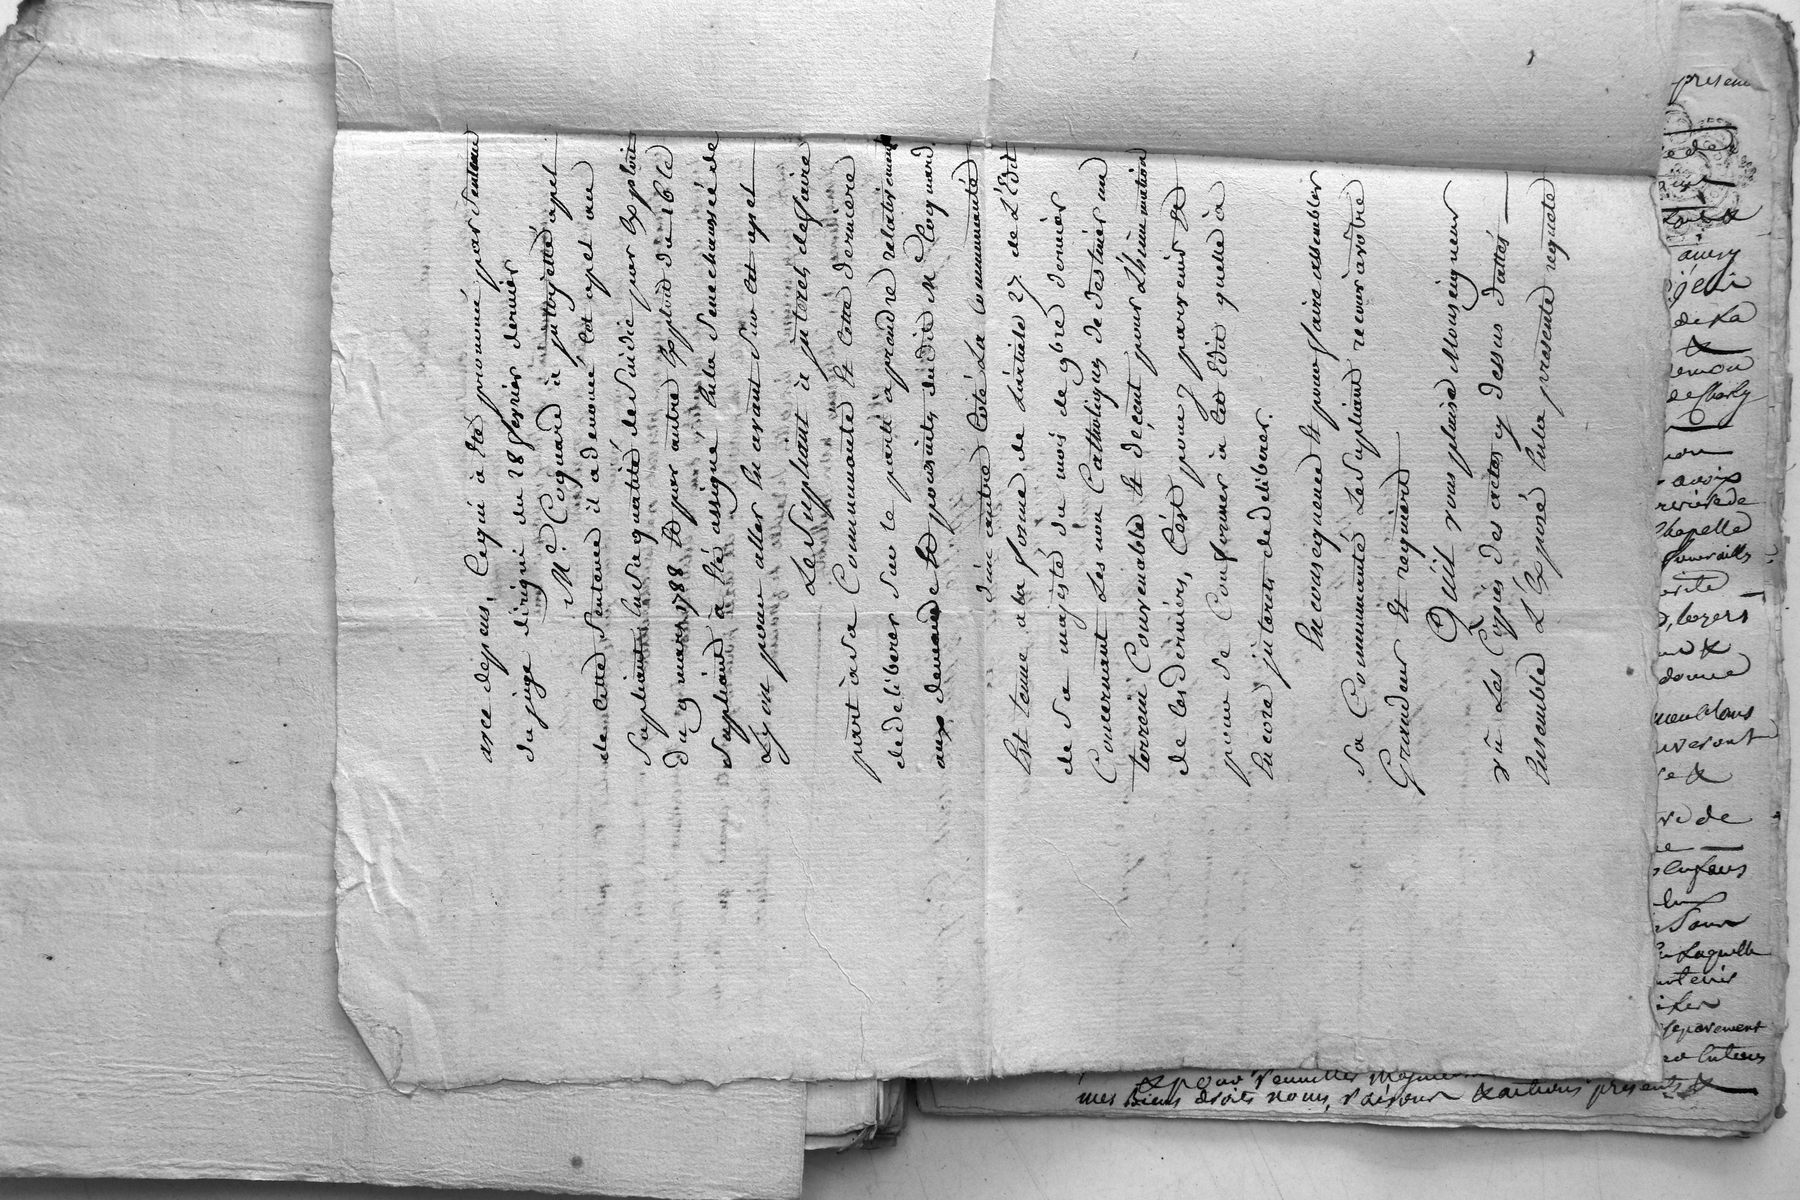 avec depens, Cequi à Eté prononcé par Sentence
du juge dirigni du 28 fevrier dernier
M.e Coquard à interjetté apel
de Cette Sentence il a denoncé Cet apel au
Supliant En Sa qualité de Sindic par Exploit
du 9 mars 1788 Et par autre Exploid du 16 le
Supliant à Eté assigné En la Senechaussée de
Lyon pour aller En avant Sur Cet apel
Le Suppliant à interets de faire
part à Sa Communauté Et Cette derniere
de deliberer Sur le parti a prendre relativement
aux demande Et poursuites dudit M.e Coquard.
d'un autre Coté La Communauté
Est tenue a la forme de L'article 27 de L'Edit
de Sa majesté du mois de 9bre dernier
Concernant Les non Catholiques de destiner un
terrein Convenable Et deçent pour L'hinumation
de Ces derniers, C'est pour y parvenir Et
pour Se Conformer à Cet Edit quelle à
Encore interets de deliberer.
En consequence Et pour faire assembler
Sa Communauté Le Supliant recour à votre
Grandeur Et requiert
Quil vous plaise Monseigneur
vû Les Copies des actes cy dessus dattés
Ensemble L'Exposé En la presente requete
presen
de La
de Charly
avoix
Chapelle
, lozers
donne
de
Enfans
Laquelle
mes Biens droits noms, raisons & actions presents &